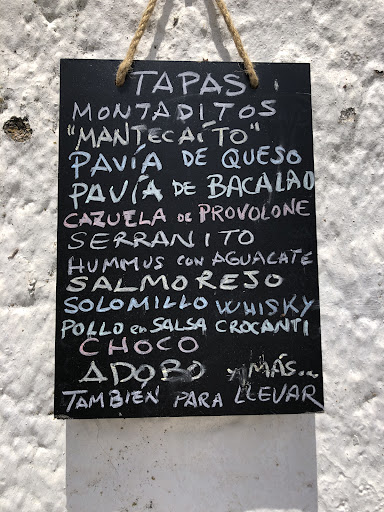 TAPAS
MONTADITOS
"MANTECAÍTO"
PAVÍA DE QUESO
PAVÍA DE BACALAO
CAZUELA DE PROVOLONE
SERRANITO
HUMMUS CON AGUACATE
SALMOREJO
SOLOMILLO WHISKY
POLLO en SALSA CROCANTI
CHOCO
ADOBO y MÁS...
TAMBIEN PARA LLEVAR